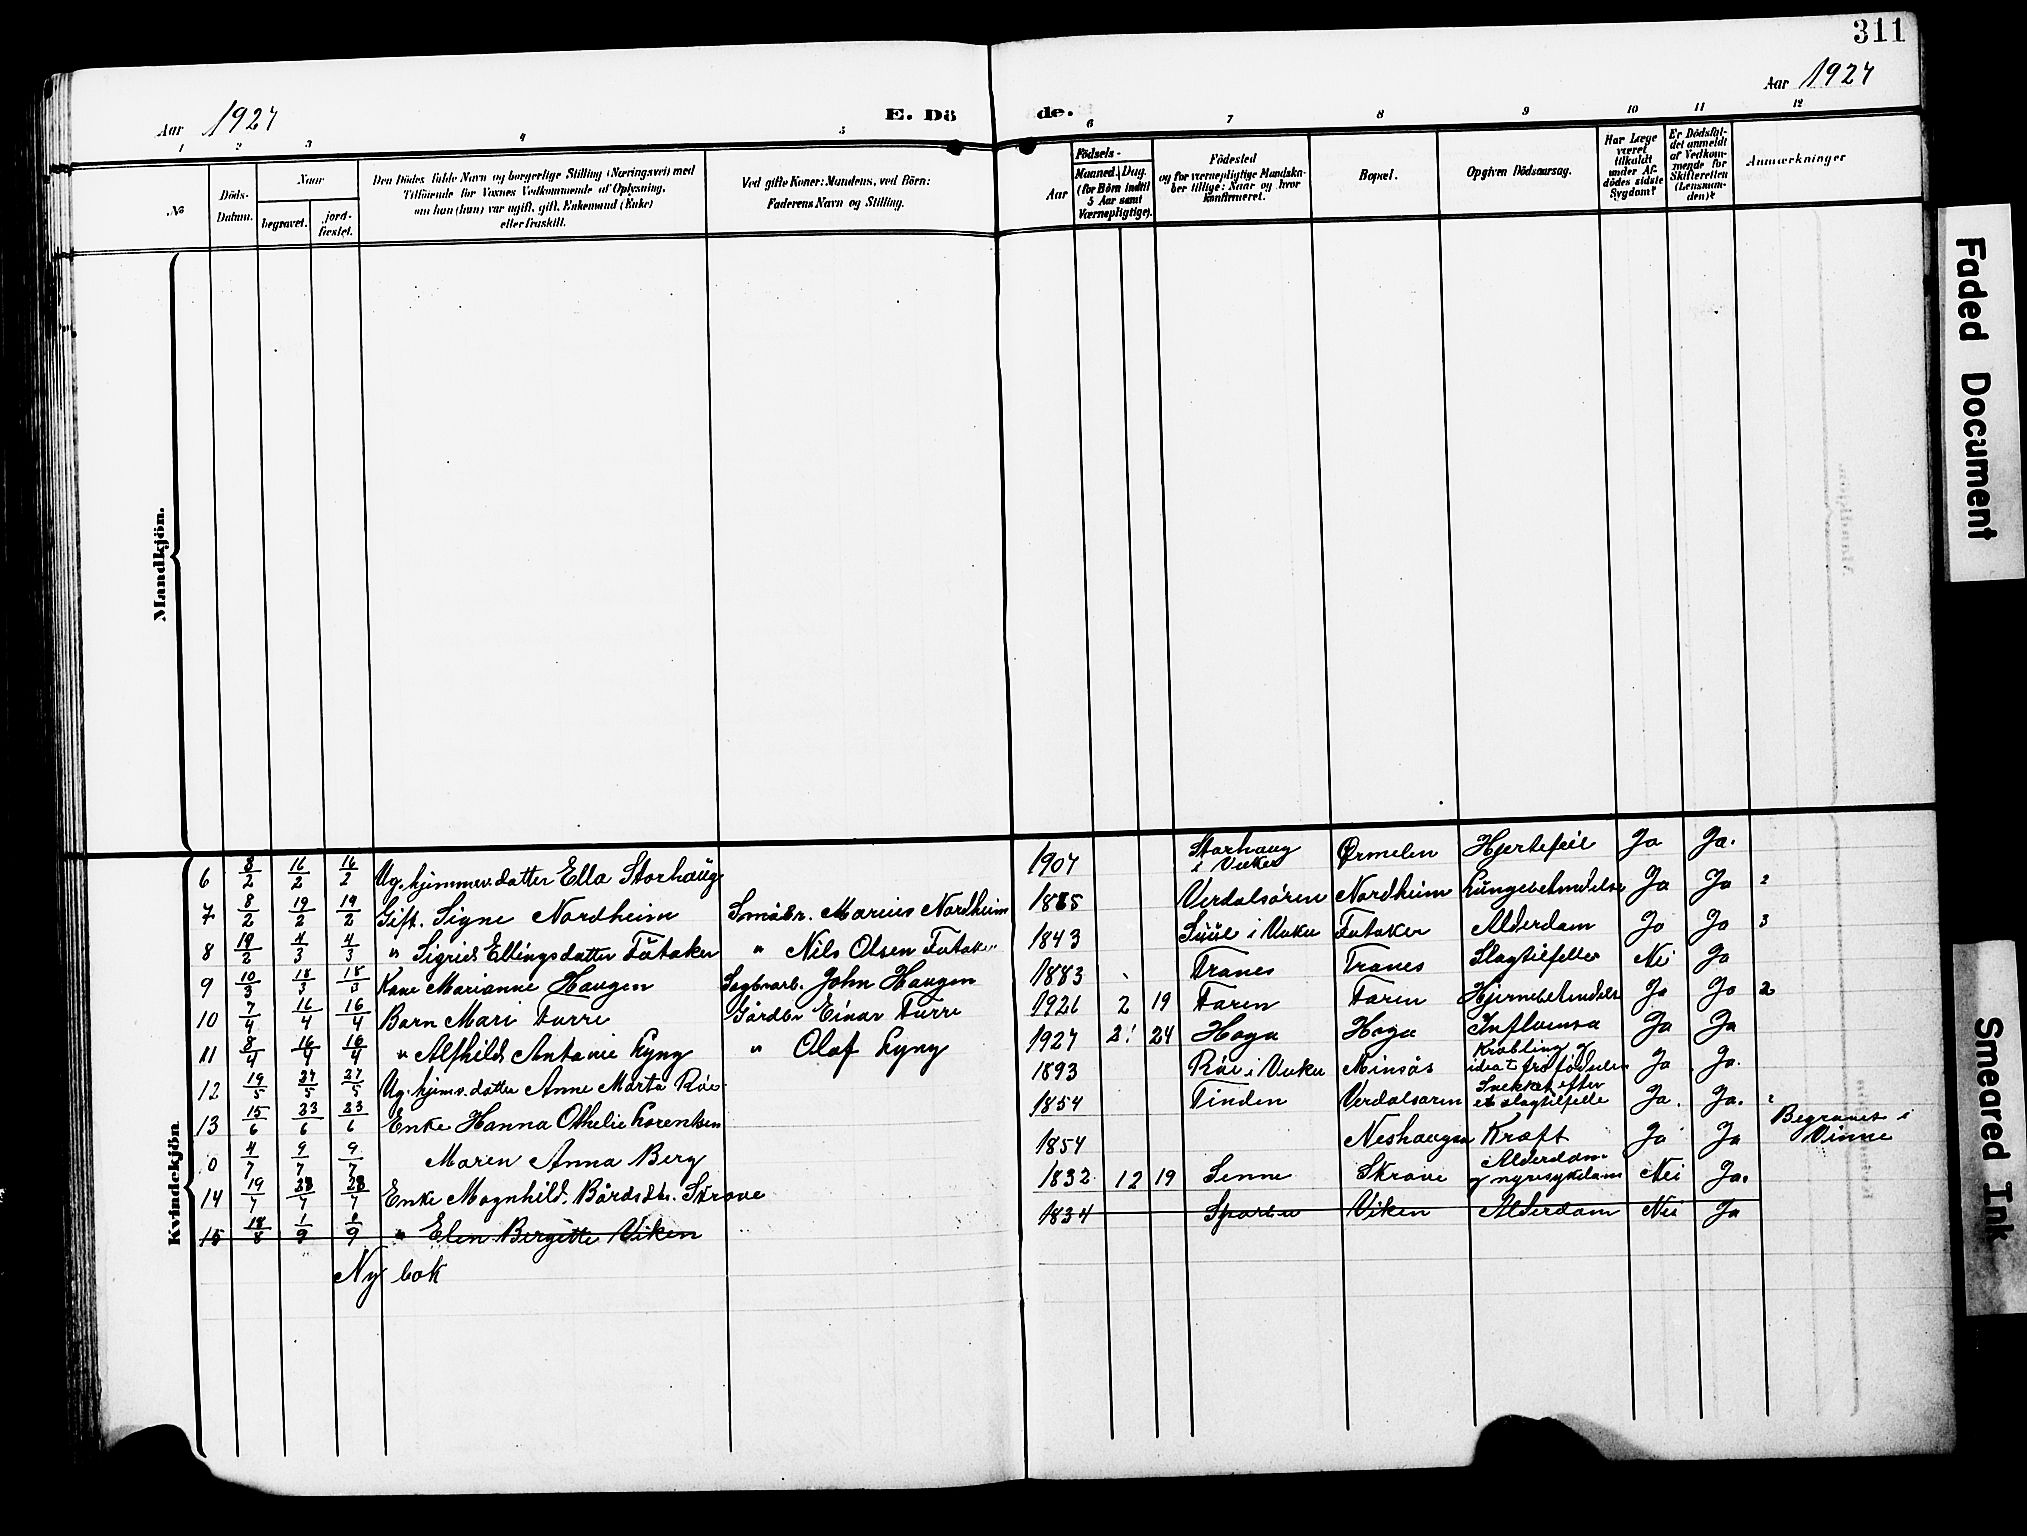 311
Aar 1927 E. Döde. Aar 1927
1 2 3 4 5 6 7 8 9 10 11 12
No
Döds-Datum.
Naar
begravet.
jordfæstet.
Den Dödes fulde Navn og borgerlige Stilling (Næringsvei) med
Tilföiende for Voxnes Vedkommende af Oplysning,
om han (hun) var ugift, gift, Enkemand (Enke)
eller fraskilt.
Ved gifte Koner: Mandens, ved Börn:
Faderens Navn og Stilling.
Födsels-
Aar
Maaned. Dag.
(for Börn indtil
5 Aar samt
Værnepligtige).
Födested
og for værnepligtige Mandskaber tillige: Naar og hvor
konfirmeret.
Bopæl.
Opgiven Dödsaarsag.
Har Læge
været
tilkaldt
under Afdödes sidste
Sygdom?
Er Dödsfaldet anmeldt
af Vedkommende for
Skifteretten
(Lensmanden)?
Anmærkninger
Mandkjön.
Kvindekjön
6 8/2 16/2 16/2 Ug. hjemmev. datter Ella Storhaug 1907 Storhaug i Vuku Ørmelen Hjertefeil Ja Ja.
7 8/2 19/2 19/2 Gift. Signe Nordheim Småbr. Marius Nordheim 1885 Verdalsören Nordheim Lungebetendelse Ja Ja 2
8 19/2 4/3 4/3 " Sigrid Ellingsdatter Futaker " Nils Olsen Futaker 1843 Suul i Vuku Futaker Alderdom Ja Ja 3
9 10/3 18/3 18/3 Kone Marianne Haugen Sagbrarb. John Haugen 1883 Tranes Tranes Slagtilfelle Nei Ja
10 7/4 16/4 16/4 Barn Mari Furre Gårdbr Einar Furre 1926 2 19 Faren Faren Hjernebetendelse Ja Ja 2
11 8/4 16/4 16/4 " Alfhild Antonie Lyng " Olaf Lyng 1927 2 24 Haga Haga Influensa Ja Ja
12 19/5 27/5 27/5 Ug. hjemv. datter Anne Marta Röe 1893 Röe i Vuku Minsås Krøbling og idiot fra födselen Ja Ja.
13 15/6 23/6 23/6 Enke Hanna Othelie Lorentsen 1854 Tinden Verdalsøren Svekket efter et slagtilfelle Ja. Ja. 2
0 4/7 9/7 9/7 Maren Anna Berg 1854 Neshaugen Kræft Ja Ja Begravet i Vinne
14 19/7 28/7 28/7 Enke Magnhild Bårdsdtr. Skrove 1832 12 19 Senne Skrove Alderdom og nyresykdom Nei Ja.
15 18/8 1/9 1/9 " Elen Bergitte Viken 1834 Sparbu Viken Alderdom Nei Ja
Ny bok
Faded Document
Smeared Ink